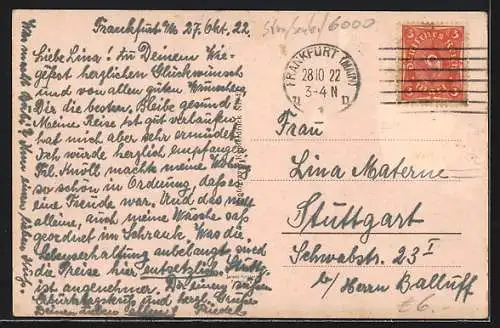 Frankfurt M. 27. Okt. 22.
Liebe Lina! Zu Deinem Wie-
genfest herzlichen Glückwunsch
und von allen guten Wünschen
Dir die besten, Bleibe gesund.
Meine Reise ist gut verlaufen
hat mich aber sehr ermüdet.
Ich wurde herzlich empfangen
Frl. Knöll machte meine
so schön in Ordnung, daß es
eine Freude war. Und das
alleine, auch meine Wäsche saß
geordnet im Schrank. Was die
Lebenserhaltung anbelangt sind
die Preise hier entsetzlich, Stuttg.
ist angenehmer. Dir einen süßen
Geburtstagskuß und herzl. Grüße
Deinen Lieben allen! Friedel
Was macht
einen lieben
6000
FRANKFURT (MAIN)
28.10 22
3-4 N
Deutsches Reich
3
3
Frau
Lina Materne
Stuttgart
Schwabstr. 23 I
b/ Herrn Balluff
£6.-